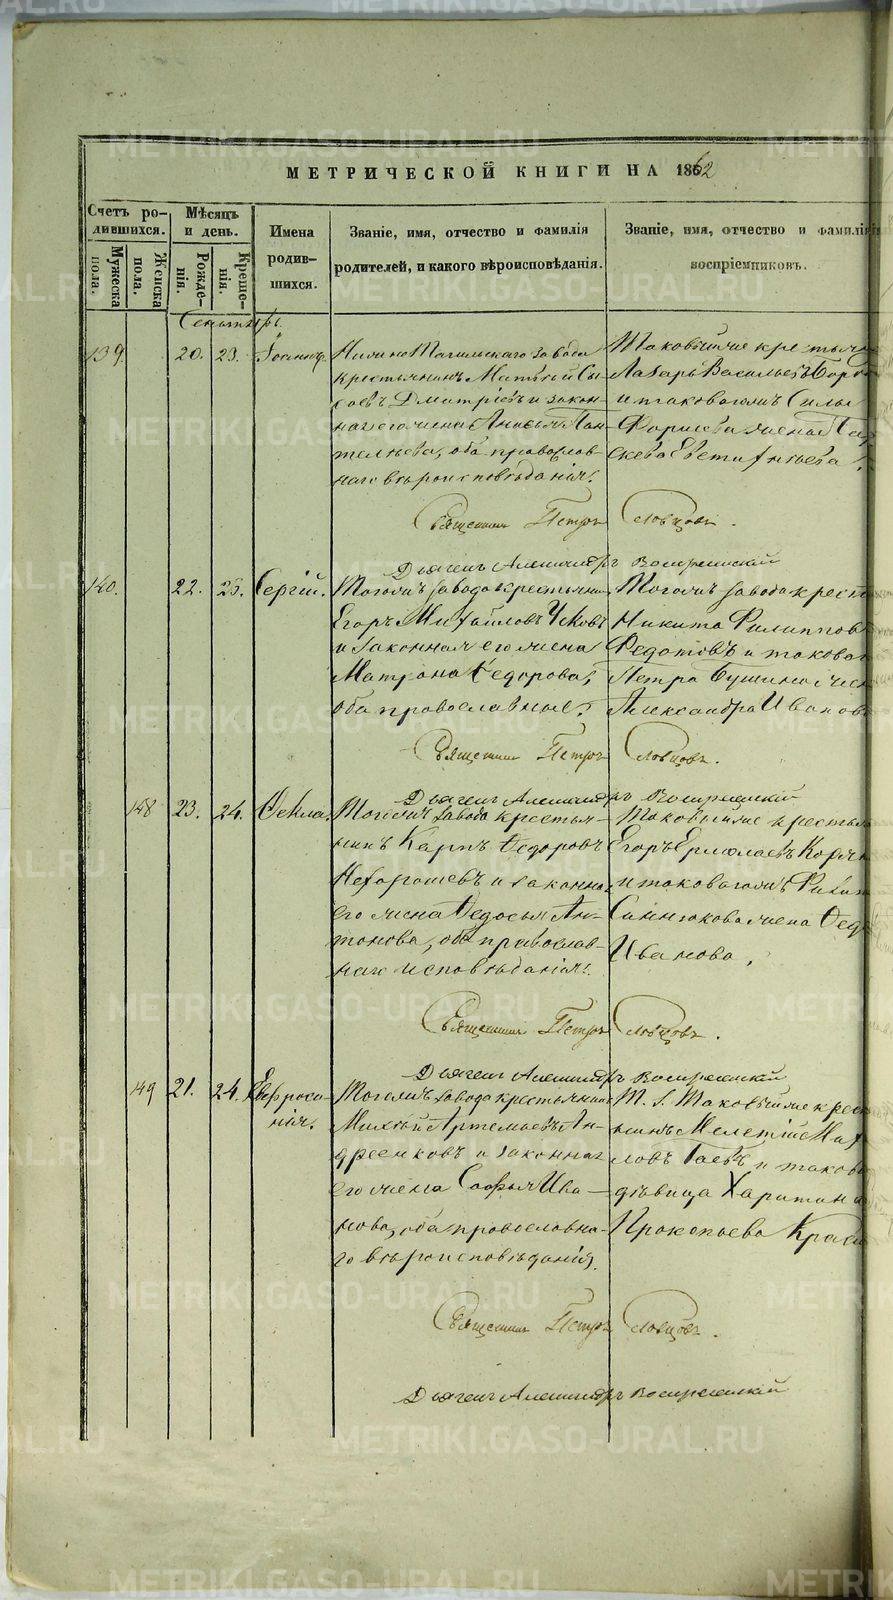 МЕТРИЧЕСКОЙ КНИГИ НА 1862
Счетъ ро-
дившихся.
Мужеска
пола.
Женска
пола.
Мѣсяцъ
и день.
Рожде-
нія.
Креще-
нія.
Имена
родив-
шихся.
Званіе, имя, отчество и фамилія
родителей, и какого вѣроисповѣданія.
Званіе, имя, отчество и фамилія
воспріемниковъ.
Сентябрь.
139. 20. 23. Іоаннъ.
Нижнетагильскаго завода
крестьянинъ Матвей Сы-
соевъ Дматріевъ и закон-
ная его жена Анисья Пан-
телѣева, оба православ-
наго вѣроисповѣданія.
Таковыйже крестьян
Лазарь Васильевъ
и таковагожъ Силы
жена Па
скева Евстифѣева
Священникъ Петръ Словцовъ.
Дьяконъ Александръ Воскресенскій
140. 22. 23. Сергій.
Тогожъ завода крестьянин
Егоръ Михайловъ
и законная его жена
Матрона Ѳедорова,
оба православные.
Тогожъ завода крест
Никита Филиппов
Федотовъ и таковаг
Петра жен
Александра Иванов
Священникъ Петръ Словцовъ.
Дьяконъ Александръ Воскресенскій
148 23. 24. Ѳекла.
Тогожъ завода крестья-
нинъ Карпъ Ѳедоровъ
Нехорошевъ и законная
его жена Ѳедосья Ан-
тонова, оба православ-
наго исповѣданія.
Таковыйже крестья
Егоръ Ермолаевъ
и таковагожъ
жена Ѳед
Иванова.
Священникъ Петръ Словцовъ.
Дьяконъ Александръ Воскресенскій
149 21. 24. Евфроси-
нія.
Тогожъ завода крестьянин
Михѣй Артемьевъ Ан-
дреенковъ и законная
его жена Софья Ива-
нова, оба православна-
го вѣроисповѣданія.
Т. З. Таковыйже крес
нинъ Мелетій Мих
ловъ Гаевъ и таков
дѣвица Харитина
Прокопьева
Священникъ Петръ Словцовъ.
Дьяконъ Александръ Воскресенскій
METRIKI.GASO-URAL.RU